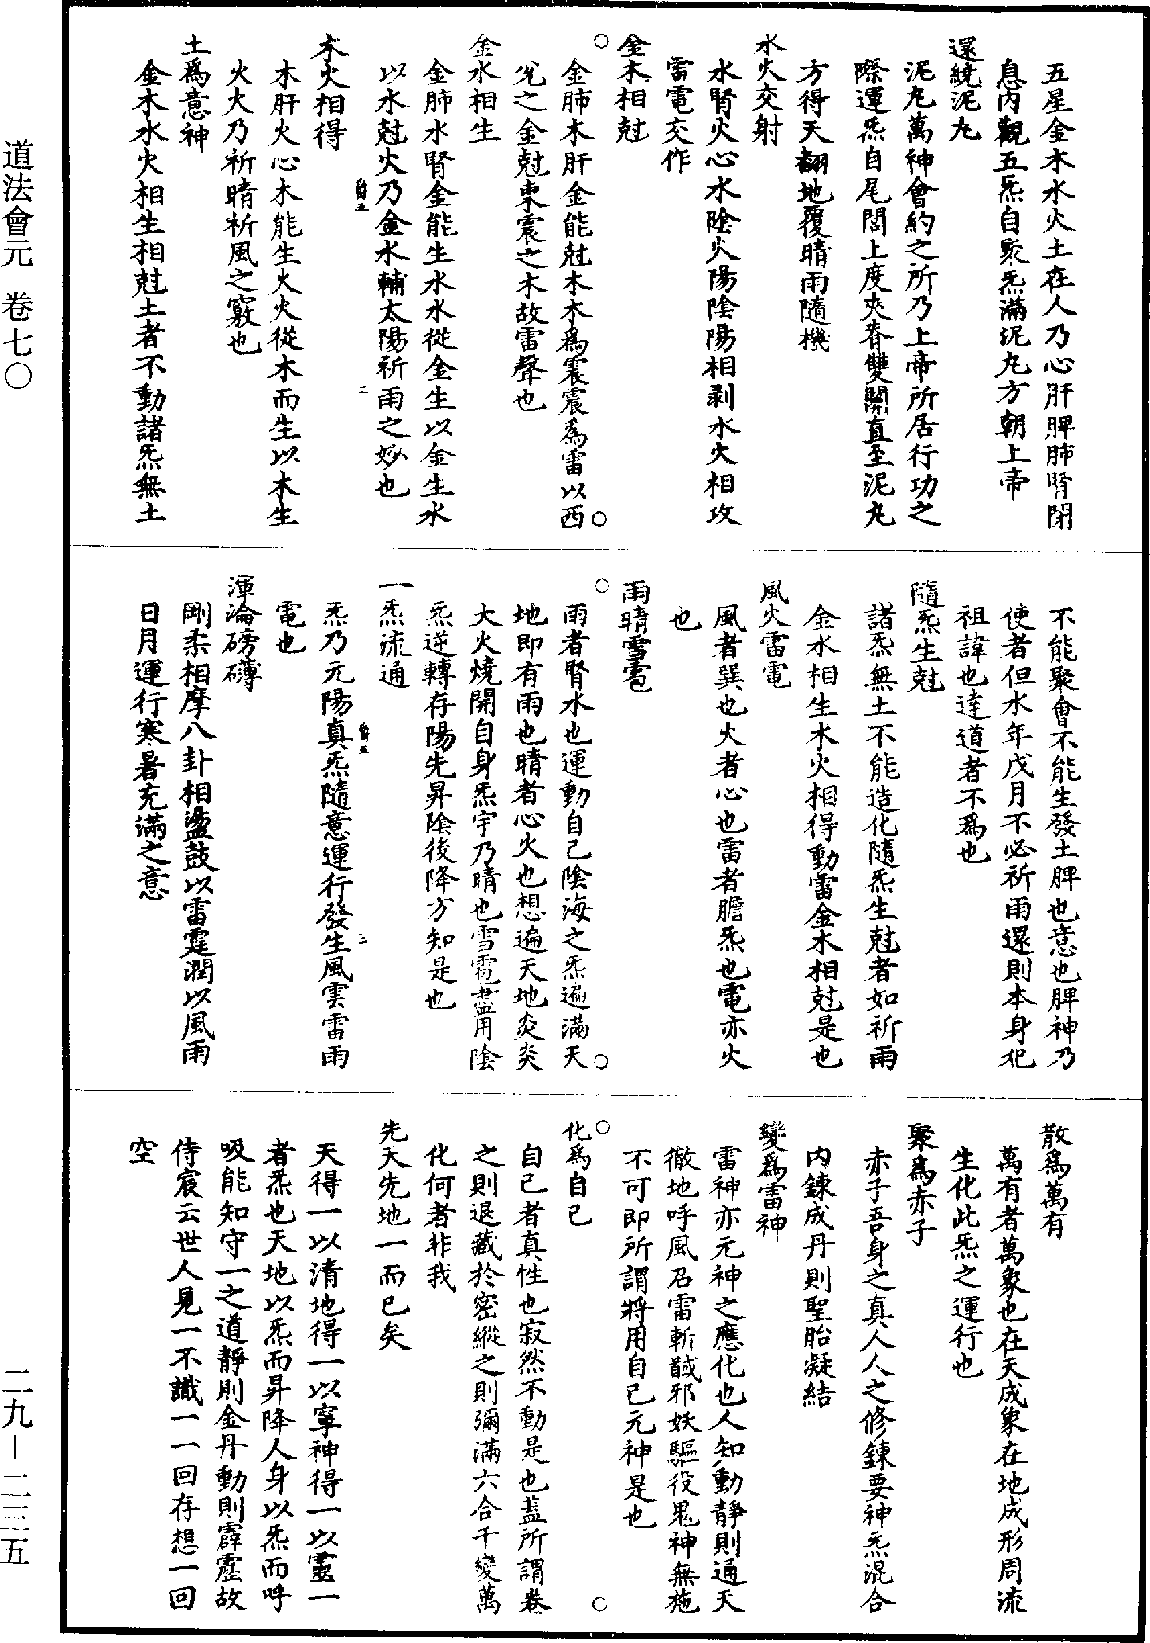 道法會元　卷七〇
五星金木水火土在人乃心肝脾肺腎閉
息内觀五炁自聚炁滿泥丸方朝上帝
還繞泥丸
泥丸萬神會約之所乃上帝所居行功之
際運炁自尾閭上度夾脊雙關直至泥丸
方得天翻地覆晴雨隨機
水火交射
水腎火心水陰火陽陰陽相剥水火相攻
雷電交作
金木相尅
金肺木肝金能尅木木爲震震爲雷以西
兊之金尅東震之木故雷聲也
金水相生
金肺水腎金能生水水從金生以金生水
以水尅火乃金水輔太陽祈雨之妙也
木火相得
木肝火心木能生火火從木而生以木生
火火乃祈晴祈風之竅也
土爲意神
金木水火相生相尅土者不動諸炁無土
不能聚會不能生發土脾也意也脾神乃
使者但水年戊月不必祈雨還則本身犯
祖諱也達道者不爲也
隨炁生尅
諸炁無土不能造化隨炁生尅者如祈雨
金水相生木火相得動雷金木相尅是也
風火雷電
風者巽也火者心也雷者膽炁也電亦火
也
雨晴雪雹
雨者腎水也運動自己陰海之炁遍滿天
地即有雨也晴者心火也想遍天地炎炎
大火燒開自身炁宇乃晴也雪雹盡用陰
炁逆轉存陽先昇陰後降方知是也
一炁流通
炁乃元陽真炁隨意運行發生風雲雷雨
電也
渾淪磅礡
剛柔相摩八卦相盪鼓以雷霆潤以風雨
日月運行寒暑充滿之意
散爲萬有
萬有者萬象也在天成象在地成形周流
生化此炁之運行也
聚爲赤子
赤子吾身之真人人之修鍊要神炁混合
内鍊成丹則聖胎凝結
變爲雷神
雷神亦元神之應化也人知動靜則通天
徹地呼風召雷斬馘邪妖驅役鬼神無施
不可即所謂將用自己元神是也
化爲自己
自己者真性也寂然不動是也蓋所謂卷
之則退藏於密縱之則彌滿六合千變萬
化何者非我
先天先地一而已矣
天得一以清地得一以寧神得一以靈一
者炁也天地以炁而昇降人身以炁而呼
吸能知守一之道靜則金丹動則霹靂故
侍宸云世人見一不識一一回存想一回
空
二九—二三五